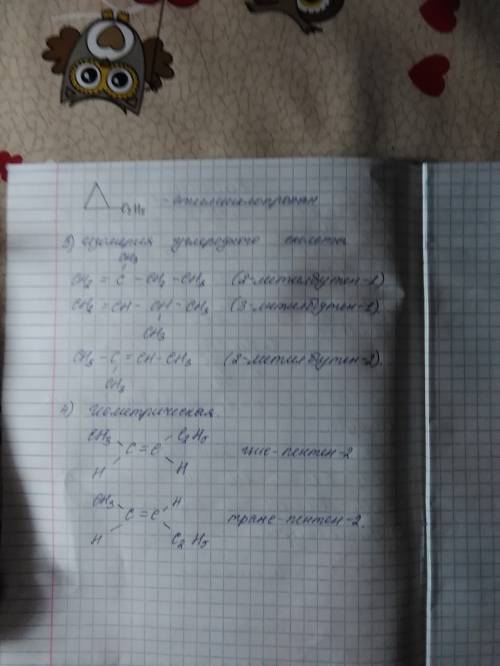 C₂H₅ - этилциклопропан
3) изомерия углеродного скелета
CH₃
CH₂ = C - CH₂ - CH₃ (2-метилбутен-1)
CH₂ = CH - CH - CH₃ (3-метилбутен-1)
CH₃
CH₃ - C = CH - CH₃ (2-метилбутен-2).
CH₃
4) геометрическая.
CH₃ C₂H₅
C = C цис-пентен-2
H H
CH₃ H
C = C транс-пентен-2.
H C₂H₅